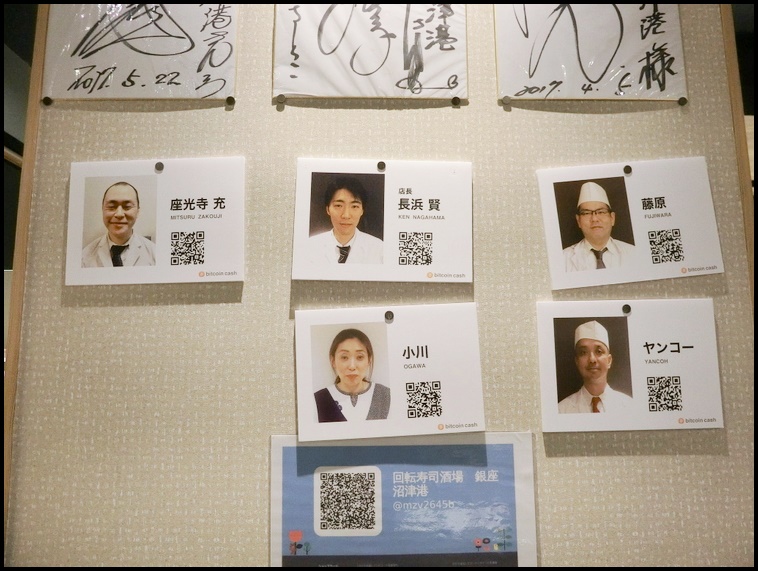 2017. 5. 22
2017. 4.
港様
座光寺 充
MITSURU ZAKOUJI
bitcoin cash
店長
長浜 賢
KEN NAGAHAMA
bitcoin cash
藤原
FUJIWARA
bitcoin cash
小川
OGAWA
bitcoin cash
ヤンコー
YANCOH
bitcoin cash
回転寿司酒場 銀座
沼津港
@mzv2645b